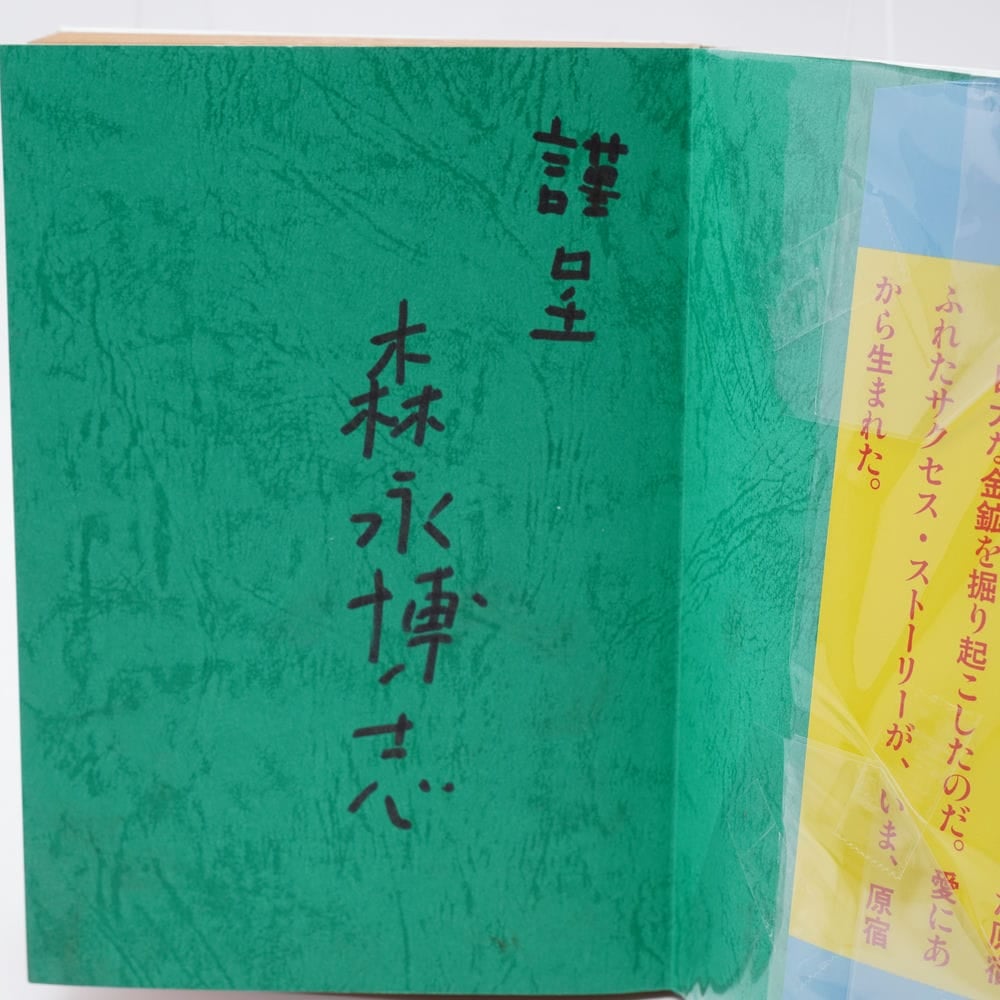 大な金鉱を掘り起こしたのだ。愛にあ
ふれたサクセス・ストーリーが、いま、原宿
から生まれた。
謹呈
森永博志